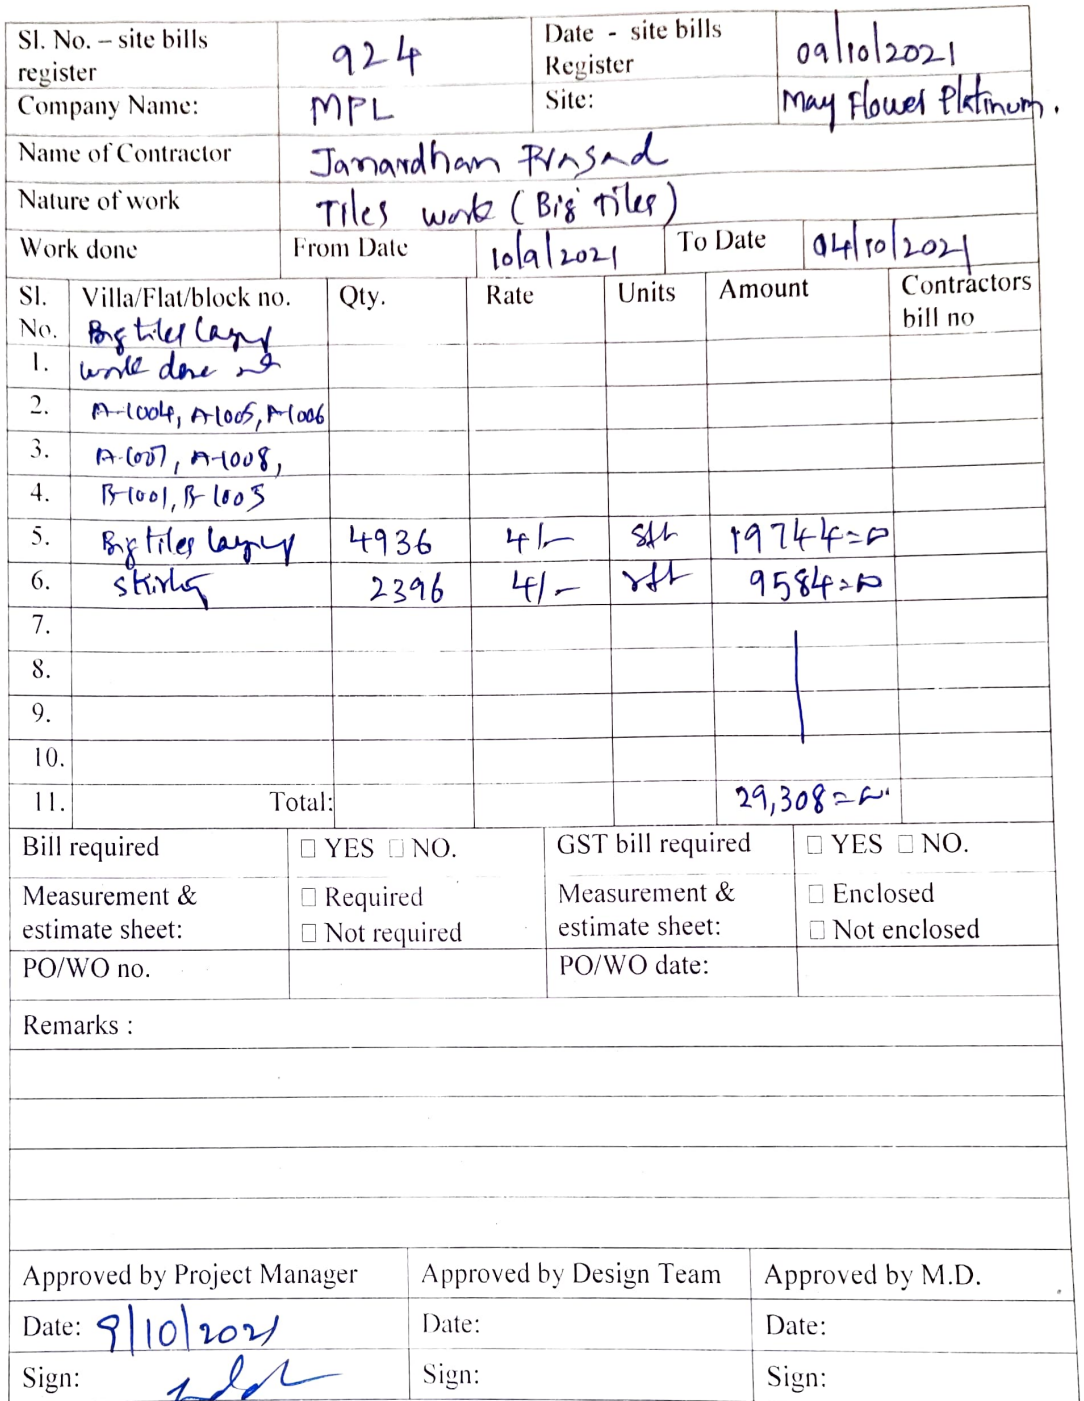 Sl. No. – site bills register 924 Date - site bills Register 09/10/2021
Company Name: MPL Site: May Flower Platinum.
Name of Contractor Janardham Prasad
Nature of work Tiles work (Big tiles)
Work done From Date 10/9/2021 To Date 04/10/2021
Sl. No. Villa/Flat/block no. Qty. Rate Units Amount Contractors bill no
Big tiles laying
1. work done at
2. A-1004, A-1005, A-1006
3. A-1007, A-1008,
4. B-1001, B-1005
5. Big tiles laying 4936 4/- sft 19744=00
6. skirting 2396 4/- rft 9584=00
7.
8.
9.
10.
11. Total: 29,308=00
Bill required ☐ YES ☐ NO. GST bill required ☐ YES ☐ NO.
Measurement & estimate sheet: ☐ Required ☐ Not required Measurement & estimate sheet: ☐ Enclosed ☐ Not enclosed
PO/WO no. PO/WO date:
Remarks :
Approved by Project Manager Approved by Design Team Approved by M.D.
Date: 9/10/2021 Date: Date:
Sign: Sign: Sign: